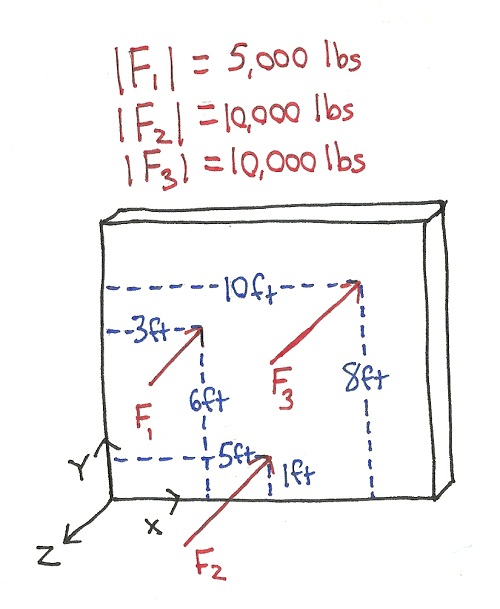 |F₁| = 5,000 lbs
|F₂| = 10,000 lbs
|F₃| = 10,000 lbs
10ft
3ft
F₃
8ft
F₁
6ft
Y
5ft
1ft
X
Z
F₂